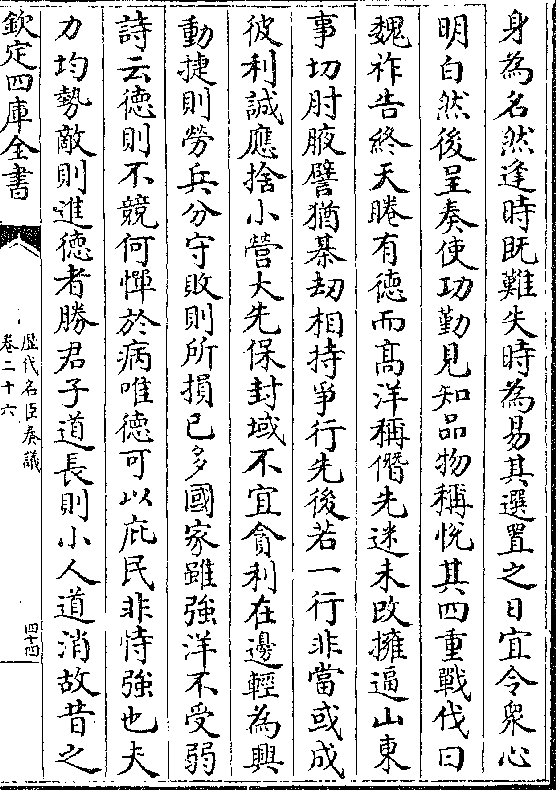 身為名然逢時既難失時為易其選置之日宜令衆心
明白然後呈奏使功勤見知品物稱恱其四重戰伐曰
魏祚告終天睠有德而髙洋稱僭先迷未改擁逼山東
事切肘腋譬猶棊刼相持爭行先後若一行非當或成
彼利誠應捨小營大先保封域不宜貪利在邊輕為興
動捷則勞兵分守敗則所損已多國家雖強洋不受弱
詩云德則不競何憚於病唯德可以庇民非恃強也夫
力均勢敵則進德者勝君子道長則小人道消故昔之
欽定四庫全書
歴代名臣奏議
卷二十六
四十四